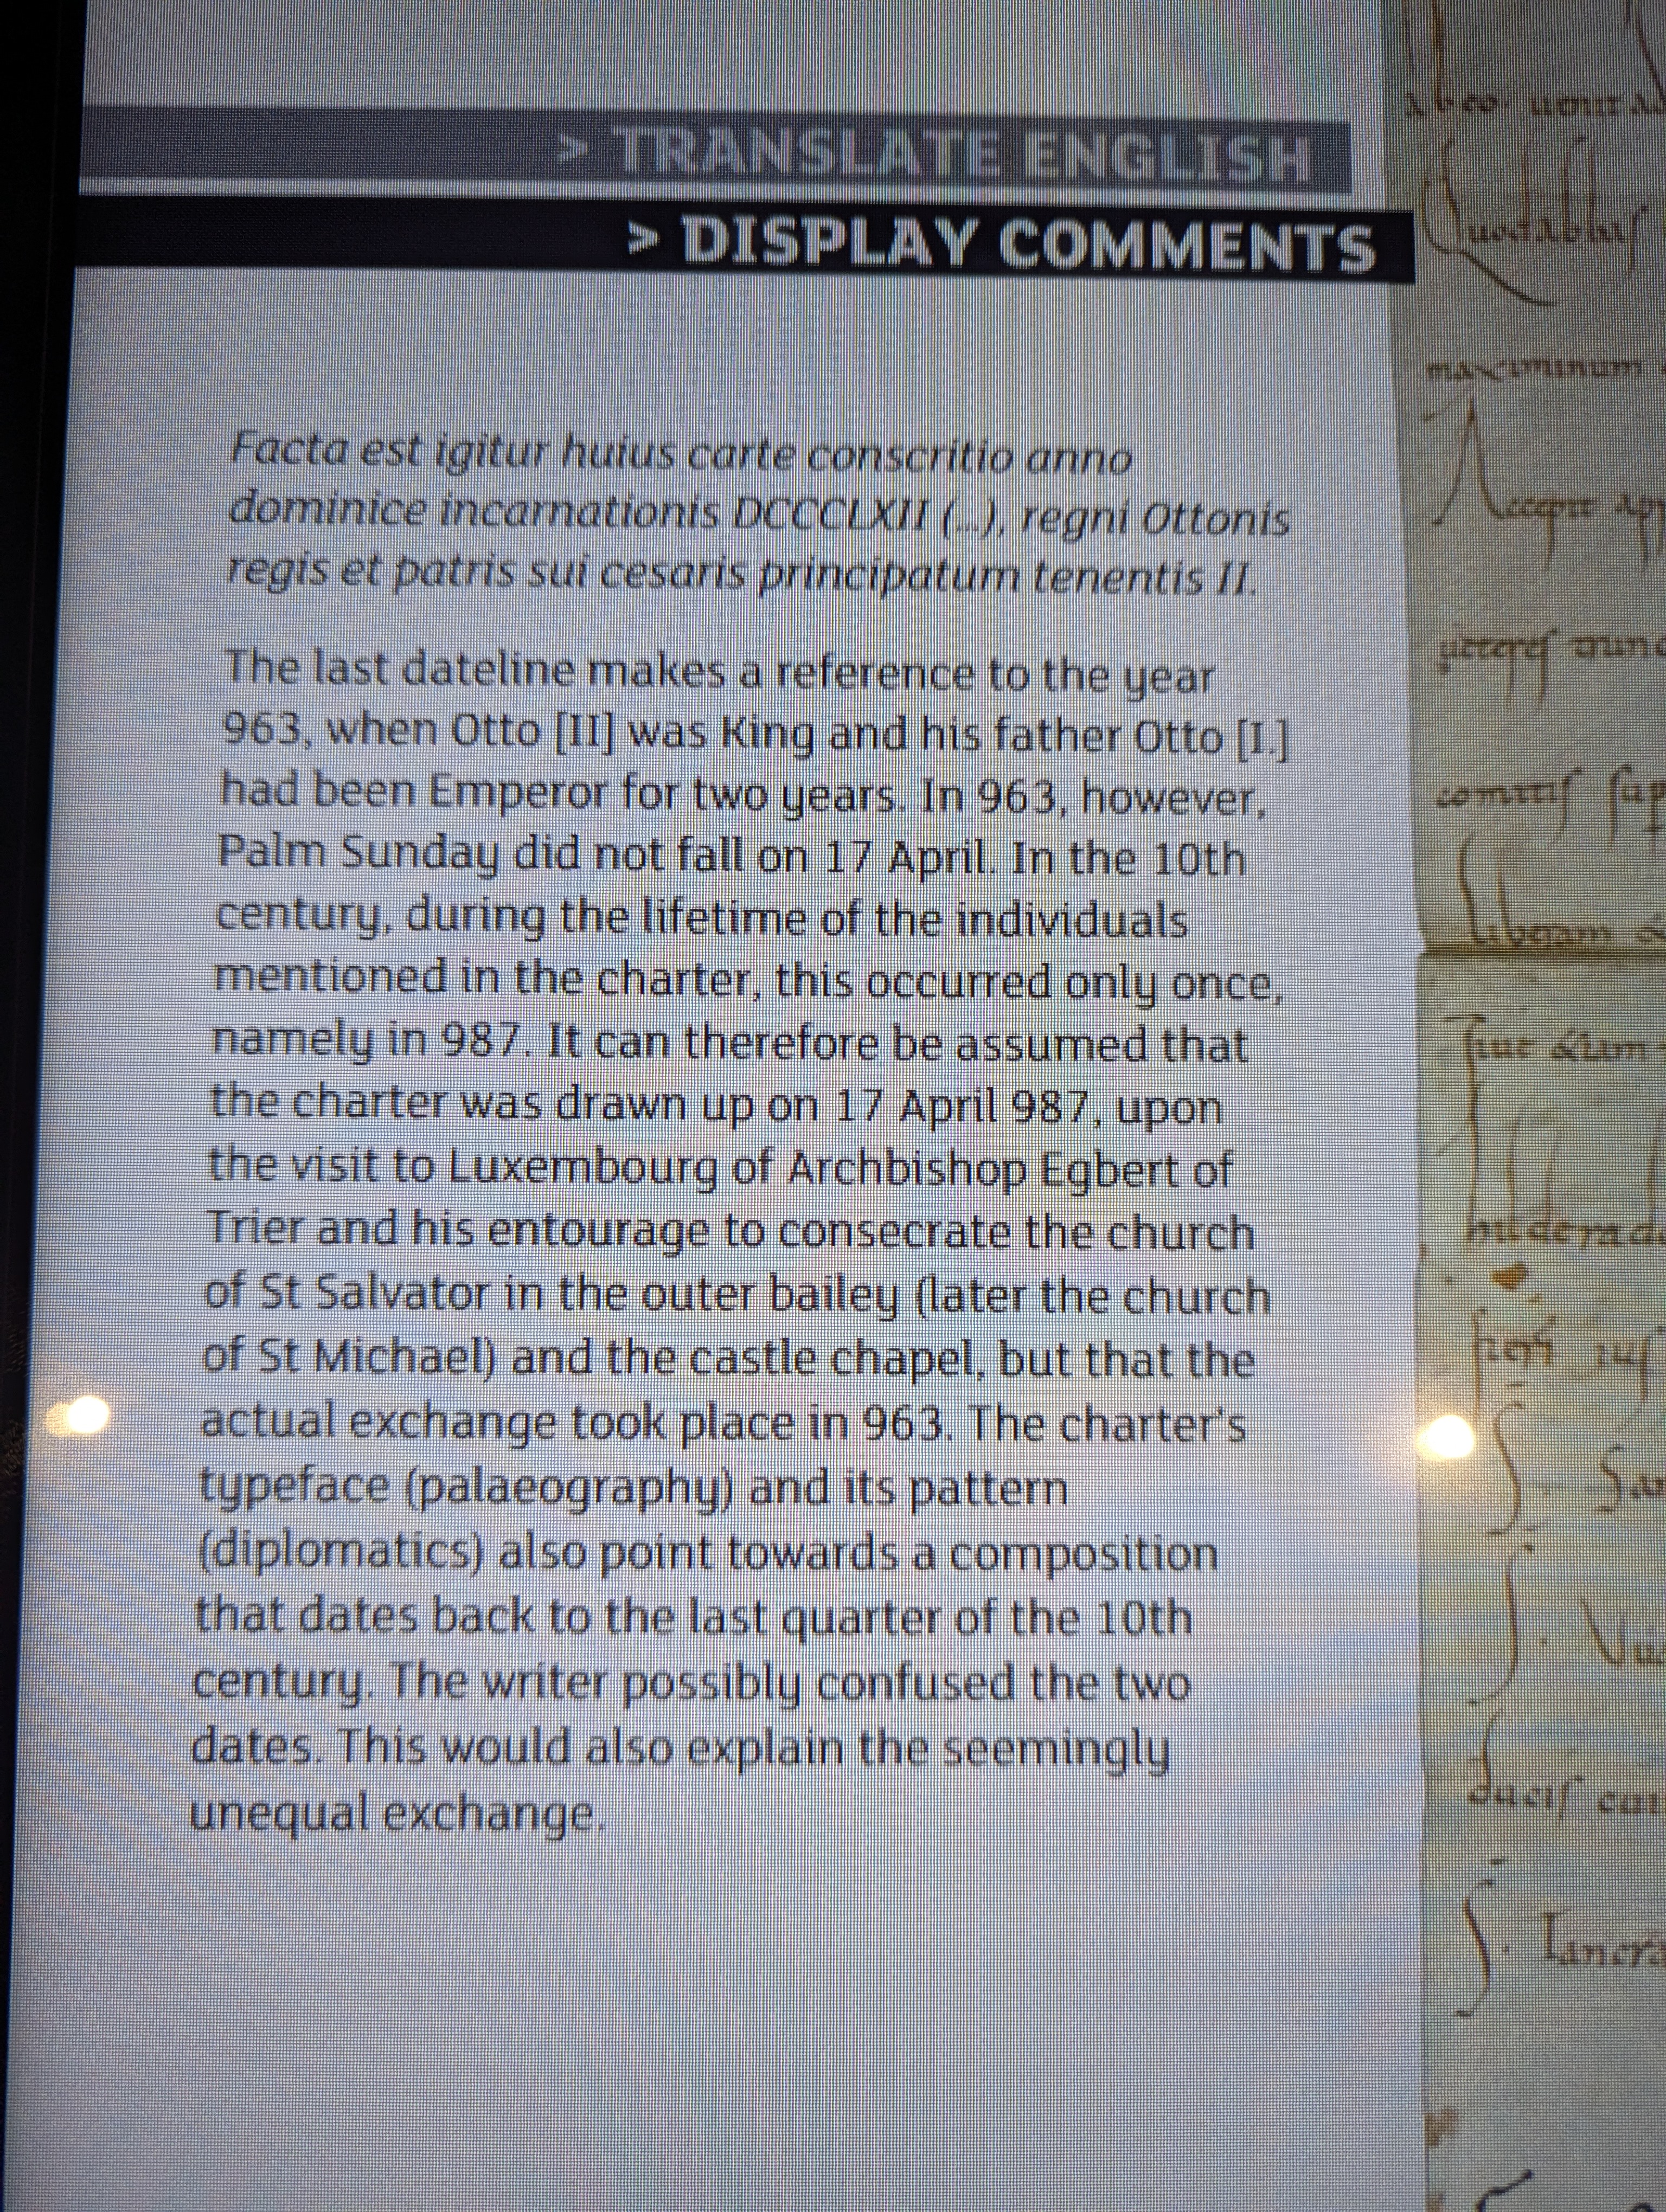 > TRANSLATE ENGLISH
> DISPLAY COMMENTS
Facta est igitur huius carte conscritio anno
dominice incarnationis DCCCLXII (...), regni Ottonis
regis et patris sui cesaris principatum tenentis II.
The last dateline makes a reference to the year
963, when Otto [II] was King and his father Otto [I.]
had been Emperor for two years. In 963, however,
Palm Sunday did not fall on 17 April. In the 10th
century, during the lifetime of the individuals
mentioned in the charter, this occurred only once,
namely in 987. It can therefore be assumed that
the charter was drawn up on 17 April 987, upon
the visit to Luxembourg of Archbishop Egbert of
Trier and his entourage to consecrate the church
of St Salvator in the outer bailey (later the church
of St Michael) and the castle chapel, but that the
actual exchange took place in 963. The charter's
typeface (palaeography) and its pattern
(diplomatics) also point towards a composition
that dates back to the last quarter of the 10th
century. The writer possibly confused the two
dates. This would also explain the seemingly
unequal exchange.
maximinum
comitis
liberam
ducis